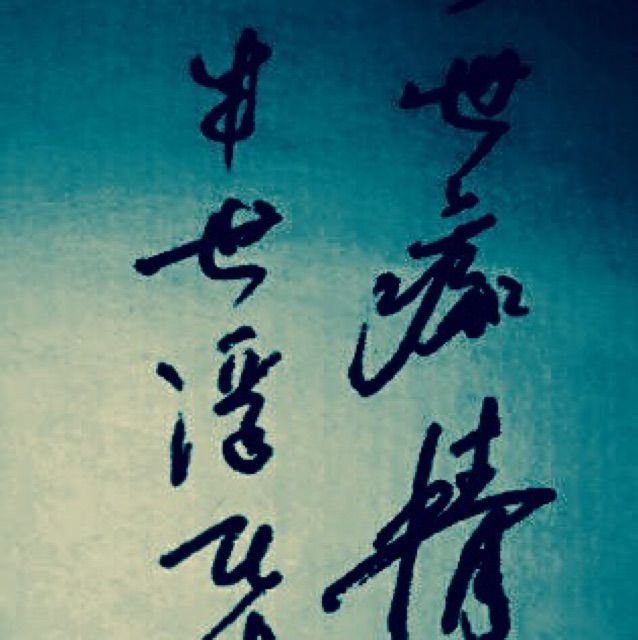 世痴情
半世浮